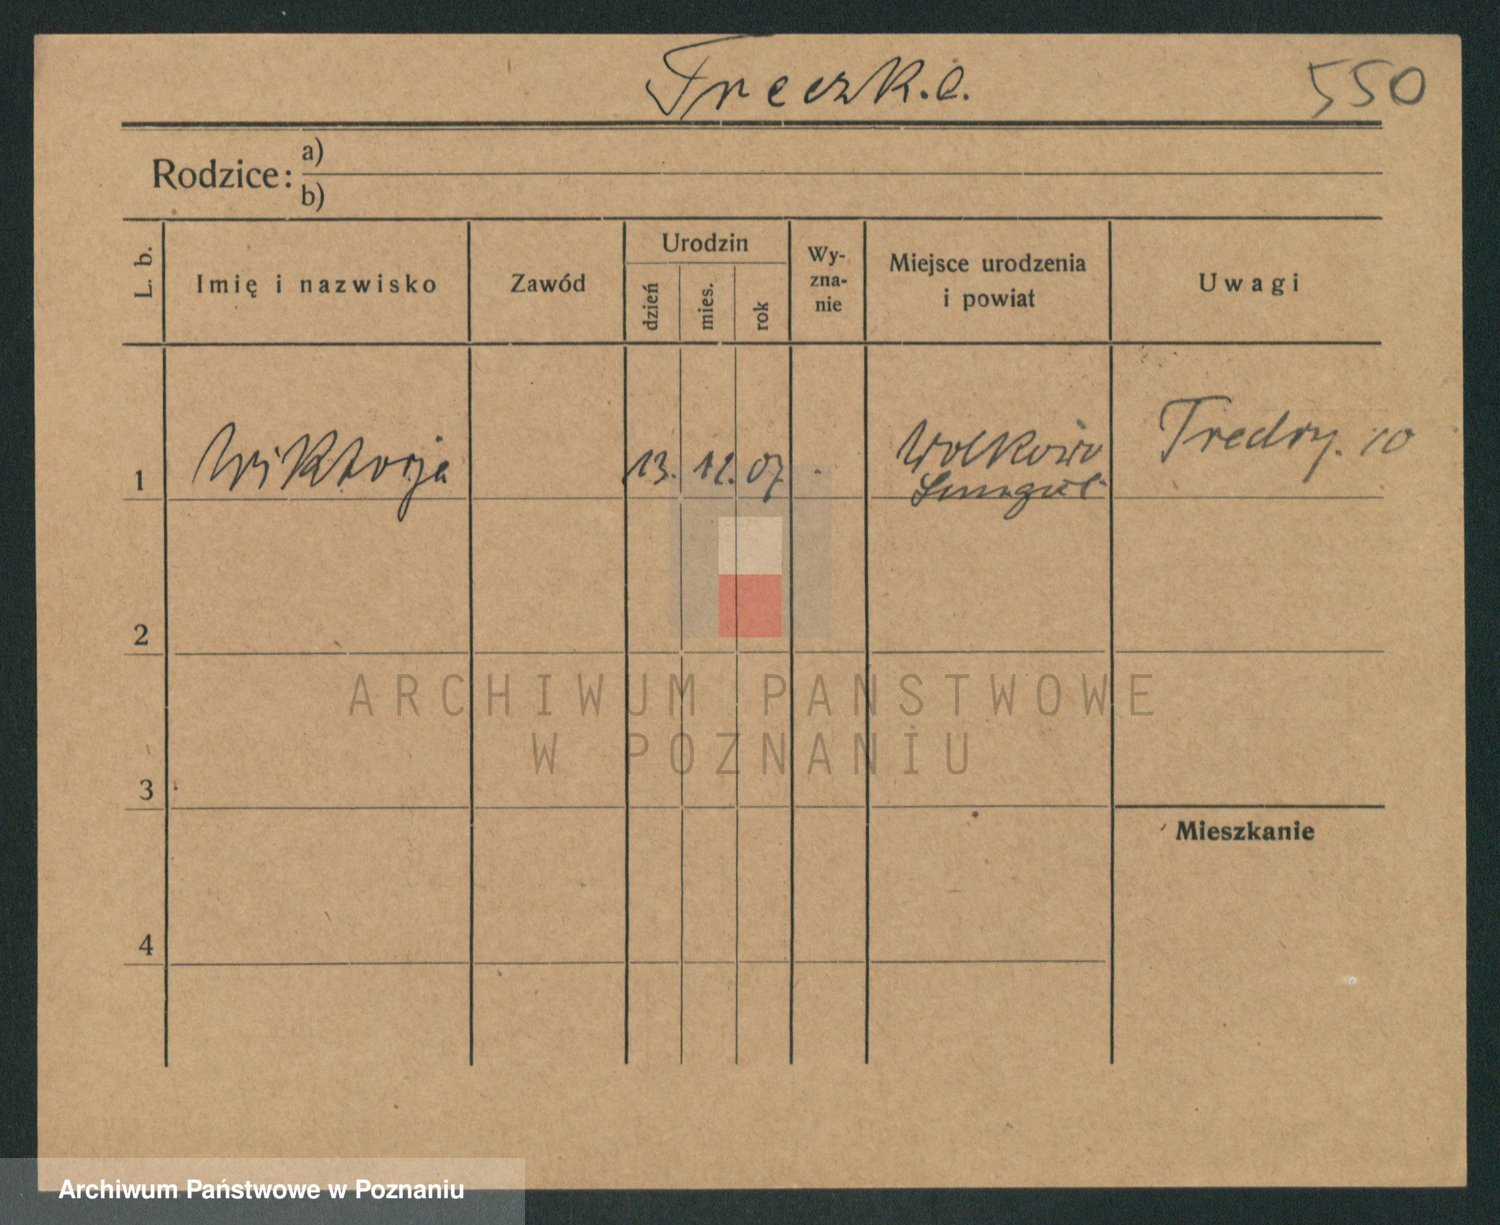 Freczk.a.
550
Rodzice: a)
b)
L. b.
Imię i nazwisko
Zawód
Urodzin
dzień
mies.
rok
Wy-
zna-
nie
Miejsce urodzenia
i powiat
Uwagi
1
Wiktorja
13. 12. 07
Wolkowo
Fredry. 10
2
3
4
Mieszkanie
ARCHIWUM PAŃSTWOWE
W POZNANIU
Archiwum Państwowe w Poznaniu